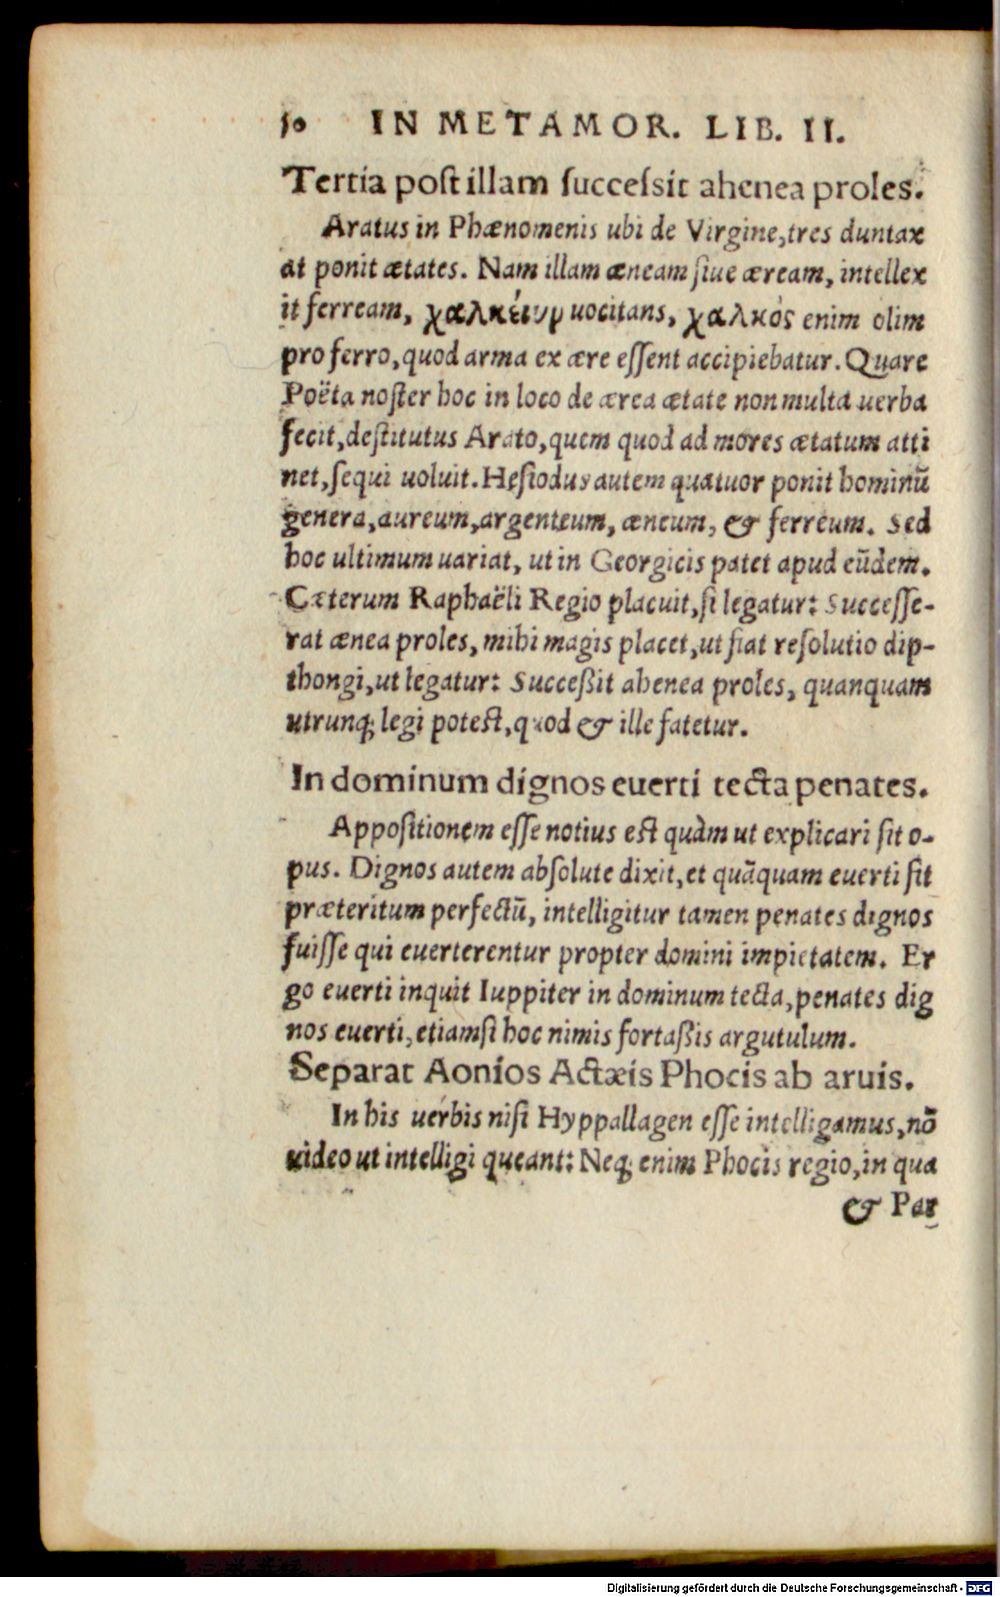 50 IN METAMOR. LIB. II.
Tertia post illam successit ahenea proles.
Aratus in Phænomenis ubi de Virgine,tres duntax
at ponit ætates. Nam illam æneam siue æream, intellex
it ferream, χαλκείην uocitans, χαλκὸς enim olim
pro ferro,quod arma ex ære essent accipiebatur. Quare
Poëta noster hoc in loco de ærea ætate non multa uerba
fecit,destitutus Arato,quem quod ad mores ætatum atti
net,sequi uoluit. Hesiodus autem quatuor ponit hominū
genera,aureum,argenteum, æneum, & ferreum. Sed
hoc ultimum uariat, ut in Georgicis patet apud eūdem.
Cæterum Raphaëli Regio placuit,si legatur: Successe-
rat ænea proles, mihi magis placet,ut fiat resolutio dip-
thongi,ut legatur: Successit ahenea proles, quanquam
utrunq; legi potest,quod & ille fatetur.
In dominum dignos euerti tecta penates.
Appositionem esse notius est quàm ut explicari sit o-
pus. Dignos autem absolute dixit,et quāquam euerti sit
præteritum perfectū, intelligitur tamen penates dignos
fuisse qui euerterentur propter domini impietatem. Er
go euerti inquit Iuppiter in dominum tecta,penates dig
nos euerti,etiamsi hoc nimis fortassis argutulum.
Separat Aonios Actæis Phocis ab aruis.
In his uerbis nisi Hyppallagen esse intelligamus,nō
uideo ut intelligi queant: Neq; enim Phocis regio,in qua
& Par
Digitalisierung gefördert durch die Deutsche Forschungsgemeinschaft - DFG